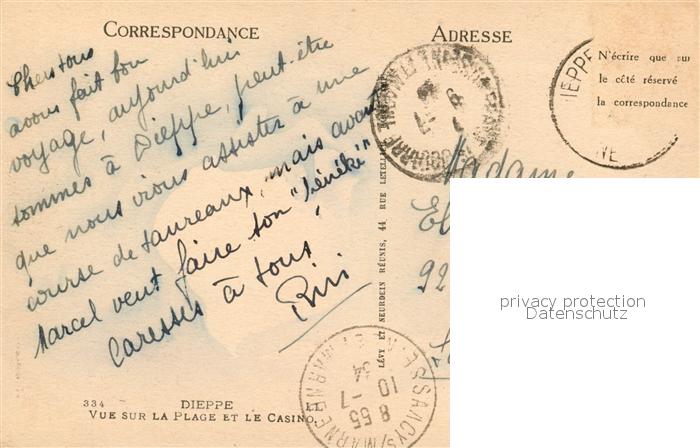 CORRESPONDANCE
ADRESSE
Chers tous
avons fait bon
voyage, aujourd'hui
sommes à Dieppe, peut-être
que nous irons assister à une
course de taureaux, mais avant
Marcel veut faire ton "
Caresses à tous,
Riri
LÉVY ET NEURDEIN RÉUNIS, 44 RUE LETELL
DIEPPE
N'écrire que sur
le côté réservé
la correspondance
Madame
El
92
8 55
10 -7
34
334 DIEPPE
VUE SUR LA PLAGE ET LE CASINO. LL
privacy protection
Datenschutz